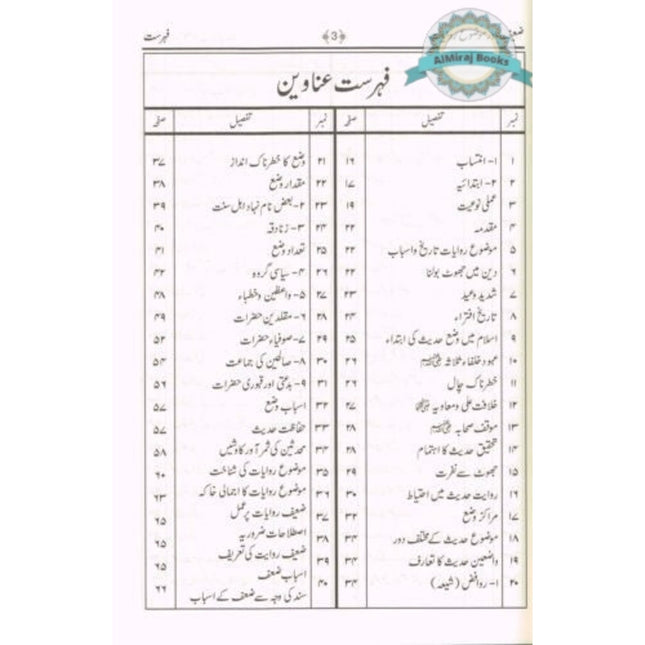 ضعیف اور موضوع روایات
﴿3﴾
فہرست
AlMiraj Books
فہرست عناوین
نمبر تفصیل صفحہ
۱ ۱- انتساب ۱۶
۲ ۲- ابتدائیہ ۱۷
۳ عملی نوعیت ۱۹
۴ مقدمہ ۲۲
۵ موضوع روایات تاریخ و اسباب ۲۲
۶ دین میں جھوٹ بولنا ۲۲
۷ شدید وعید ۲۳
۸ تاریخ افتراء ۲۴
۹ اسلام میں وضع حدیث کی ابتداء ۲۵
۱۰ عہود خلفاء ثلاثہ ۲۶
۱۱ خطرناک چال ۲۶
۱۲ خلافت علی و معاویہ ۲۷
۱۳ موقف صحابہ ۲۸
۱۴ تحقیق حدیث کا اہتمام ۲۸
۱۵ جھوٹ سے نفرت ۲۹
۱۶ روایت حدیث میں احتیاط ۳۰
۱۷ مراکز وضع ۳۲
۱۸ موضوع حدیث کے مختلف دور ۳۴
۱۹ واضعین حدیث کا تعارف ۳۴
۲۰ ۱- روافض (شیعہ) ۳۴
نمبر تفصیل صفحہ
۲۱ وضع کا خطرناک انداز ۳۷
۲۲ مقدار وضع ۳۸
۲۳ ۲- بعض نام نہاد اہل سنت ۳۹
۲۴ ۳- زنادقہ ۴۰
۲۵ تعداد وضع ۴۱
۲۶ ۴- سیاسی گروہ ۴۲
۲۷ ۵- واعظین و خطباء ۴۸
۲۸ ۶- مقلدین حضرات ۴۹
۲۹ ۷- صوفیاء حضرات ۵۲
۳۰ ۸- صالحین کی جماعت ۵۴
۳۱ ۹- بدعتی اور قبوری حضرات ۵۶
۳۲ اسباب وضع ۵۷
۳۳ حفاظت حدیث ۵۷
۳۴ محدثین کی ثمر آور کاوشیں ۵۸
۳۵ موضوع روایات کی شناخت ۶۰
۳۶ موضوع روایات کا اجمالی خاکہ ۶۳
۳۷ ضعیف روایات پر عمل ۶۵
۳۸ اصطلاحات ضروریہ ۶۵
۳۹ ضعیف روایت کی تعریف ۶۵
۴۰ اسباب ضعف
سند کی وجہ سے ضعف کے اسباب ۶۶